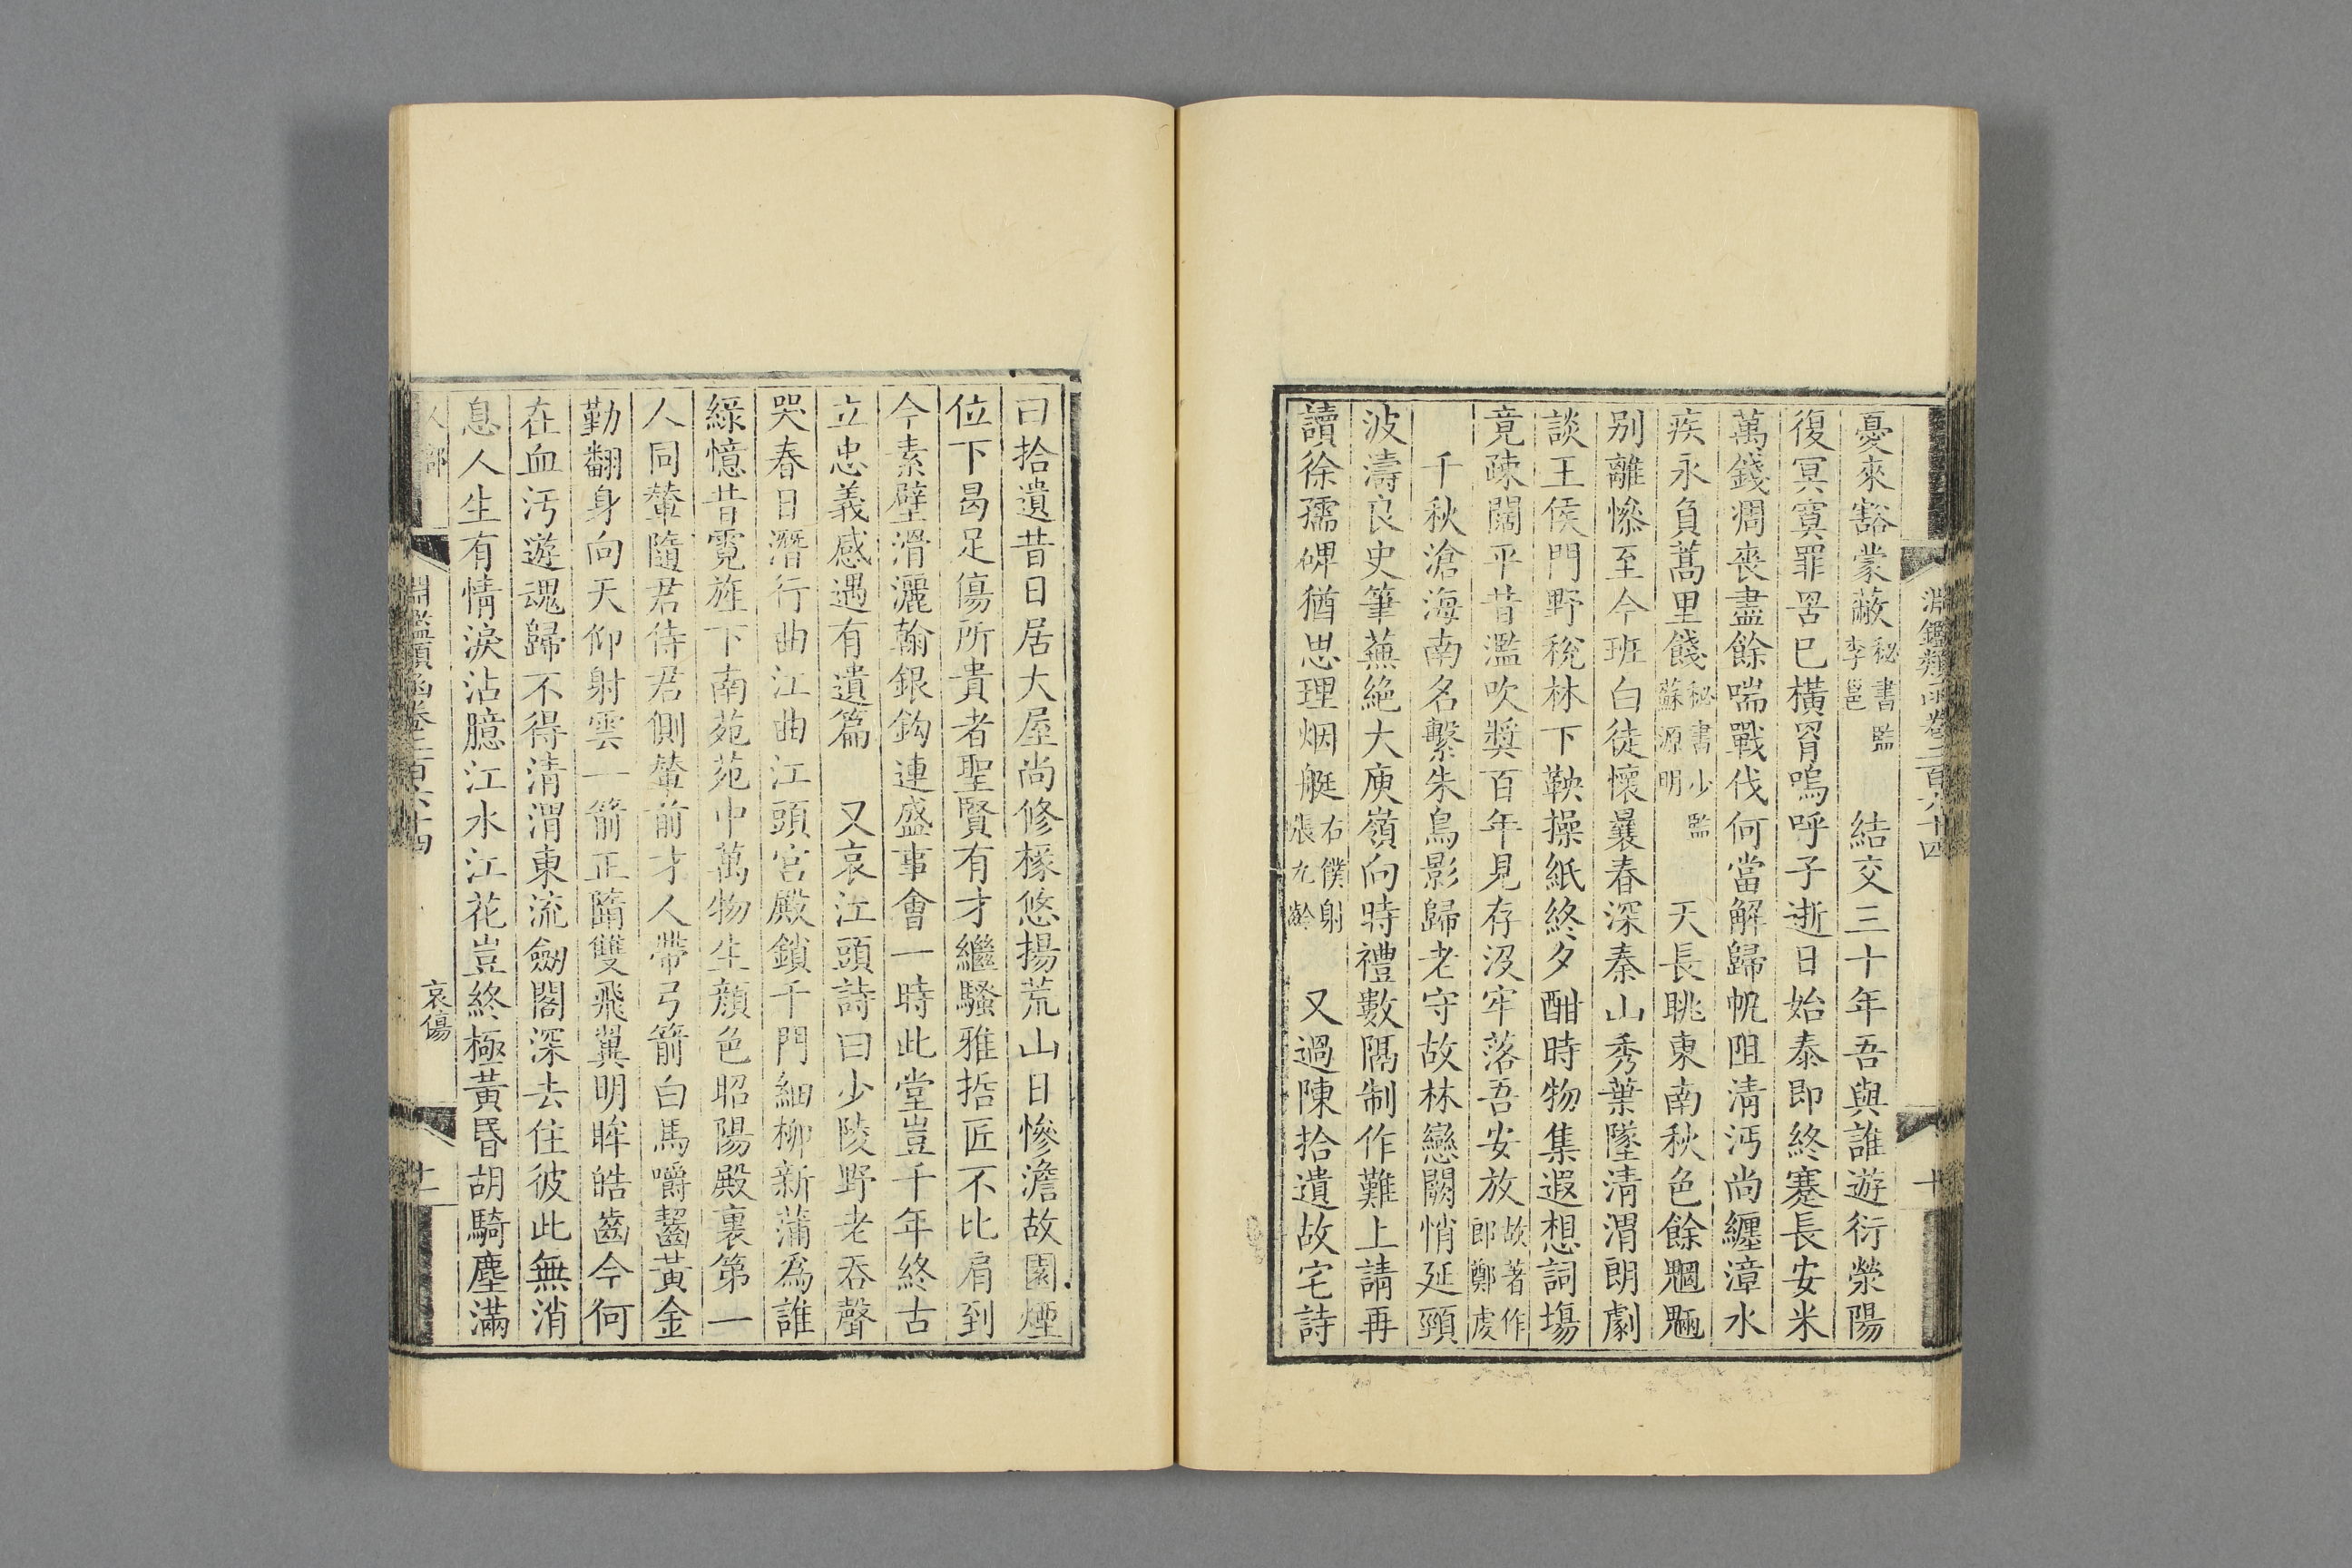 憂來豁蒙蔽秘書監李邕 結交三十年吾與誰遊衍滎陽
復冥寞罪罟已橫罥嗚呼子逝日始泰即終蹇長安米
萬錢凋喪盡餘喘戰伐何當解歸帆阻清沔尚纏漳水
疾永負蒿里餞秘書少監蘇源明 天長眺東南秋色餘魍魎
別離慘至今班白徒懷曩春深秦山秀葉墜清渭朗劇
談王侯門野稅林下鞅操紙終夕酣時物集遐想詞塲
竟疎闊平昔濫吹奬百年見存沒牢落吾安放故著作郎鄭虔
千秋滄海南名繫朱鳥影歸老守故林戀闕悄延頸
波濤良史筆蕪絶大庾嶺向時禮數隔制作難上請再
讀徐孺碑猶思理烟艇右僕射張九齡 又過陳拾遺故宅詩
曰拾遺昔日居大屋尚修椽悠揚荒山日慘澹故園煙
位下曷足傷所貴者聖賢有才繼騷雅哲匠不比肩到
今素壁滑灑翰銀鈎連盛事會一時此堂豈千年終古
立忠義感遇有遺篇 又哀江頭詩曰少陵野老吞聲
哭春日潛行曲江曲江頭宮殿鎖千門細柳新蒲爲誰
綠憶昔霓旌下南苑苑中萬物生顔色昭陽殿裏第一
人同輦隨君侍君側輦前才人帶弓箭白馬嚼齧黃金
勤翻身向天仰射雲一箭正墮雙飛翼明眸皓齒今何
在血汚遊魂歸不得清渭東流劍閣深去住彼此無消
息人生有情淚沾臆江水江花豈終極黃昏胡騎塵滿
淵鑑類函卷二百六十四
十
人部
淵鑑類函卷二百六十四
哀傷
十一